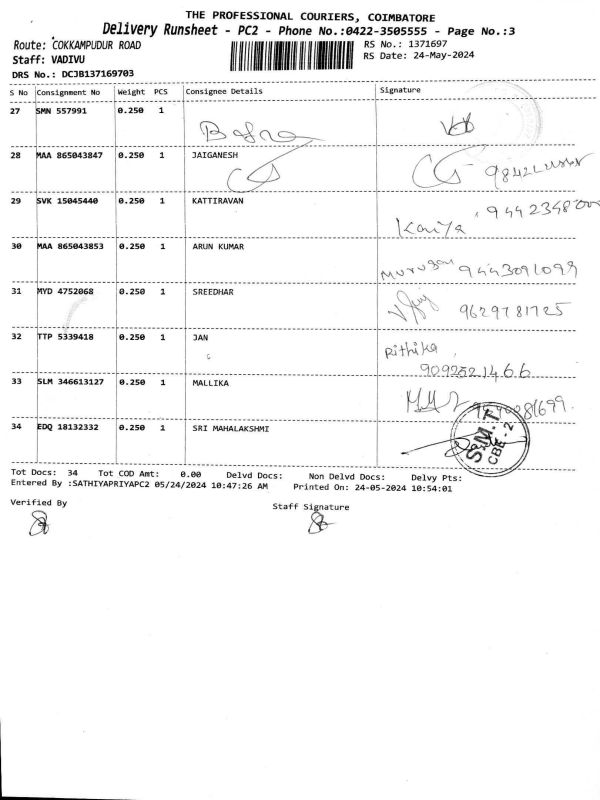 THE PROFESSIONAL COURIERS, COIMBATORE
Delivery Runsheet - PC2 - Phone No.:0422-3505555 - Page No.:3
Route: COKKAMPUDUR ROAD
RS No.: 1371697
Staff: VADIVU
RS Date: 24-May-2024
DRS No.: DCJB137169703
S No Consignment No Weight PCS Consignee Details Signature
27 SMN 557991 0.250 1
28 MAA 865043847 0.250 1 JAIGANESH
29 SVK 15045440 0.250 1 KATTIRAVAN
30 MAA 865043853 0.250 1 ARUN KUMAR
Murugan 9443091099
31 MYD 4752068 0.250 1 SREEDHAR
9629781725
32 TTP 5339418 0.250 1 JAN
Rithika
33 SLM 346613127 0.250 1 MALLIKA
34 EDQ 18132332 0.250 1 SRI MAHALAKSHMI
CBE-2
Tot Docs: 34 Tot COD Amt: 0.00 Delvd Docs: Non Delvd Docs: Delvy Pts:
Entered By :SATHIYAPRIYAPC2 05/24/2024 10:47:26 AM Printed On: 24-05-2024 10:54:01
Verified By
Staff Signature